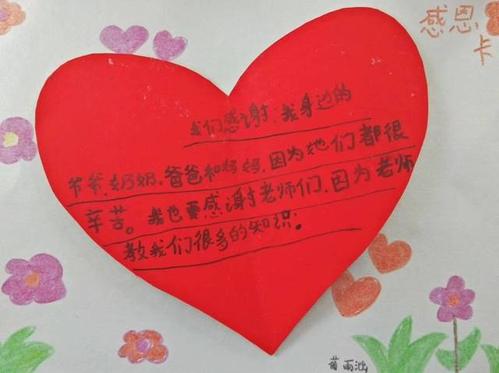 感恩
卡
我们感谢,我身边的
爷爷,奶奶,爸爸和妈妈,因为她们都很
辛苦。我也要感谢老师们,因为老师
教我们很多的知识。
雨